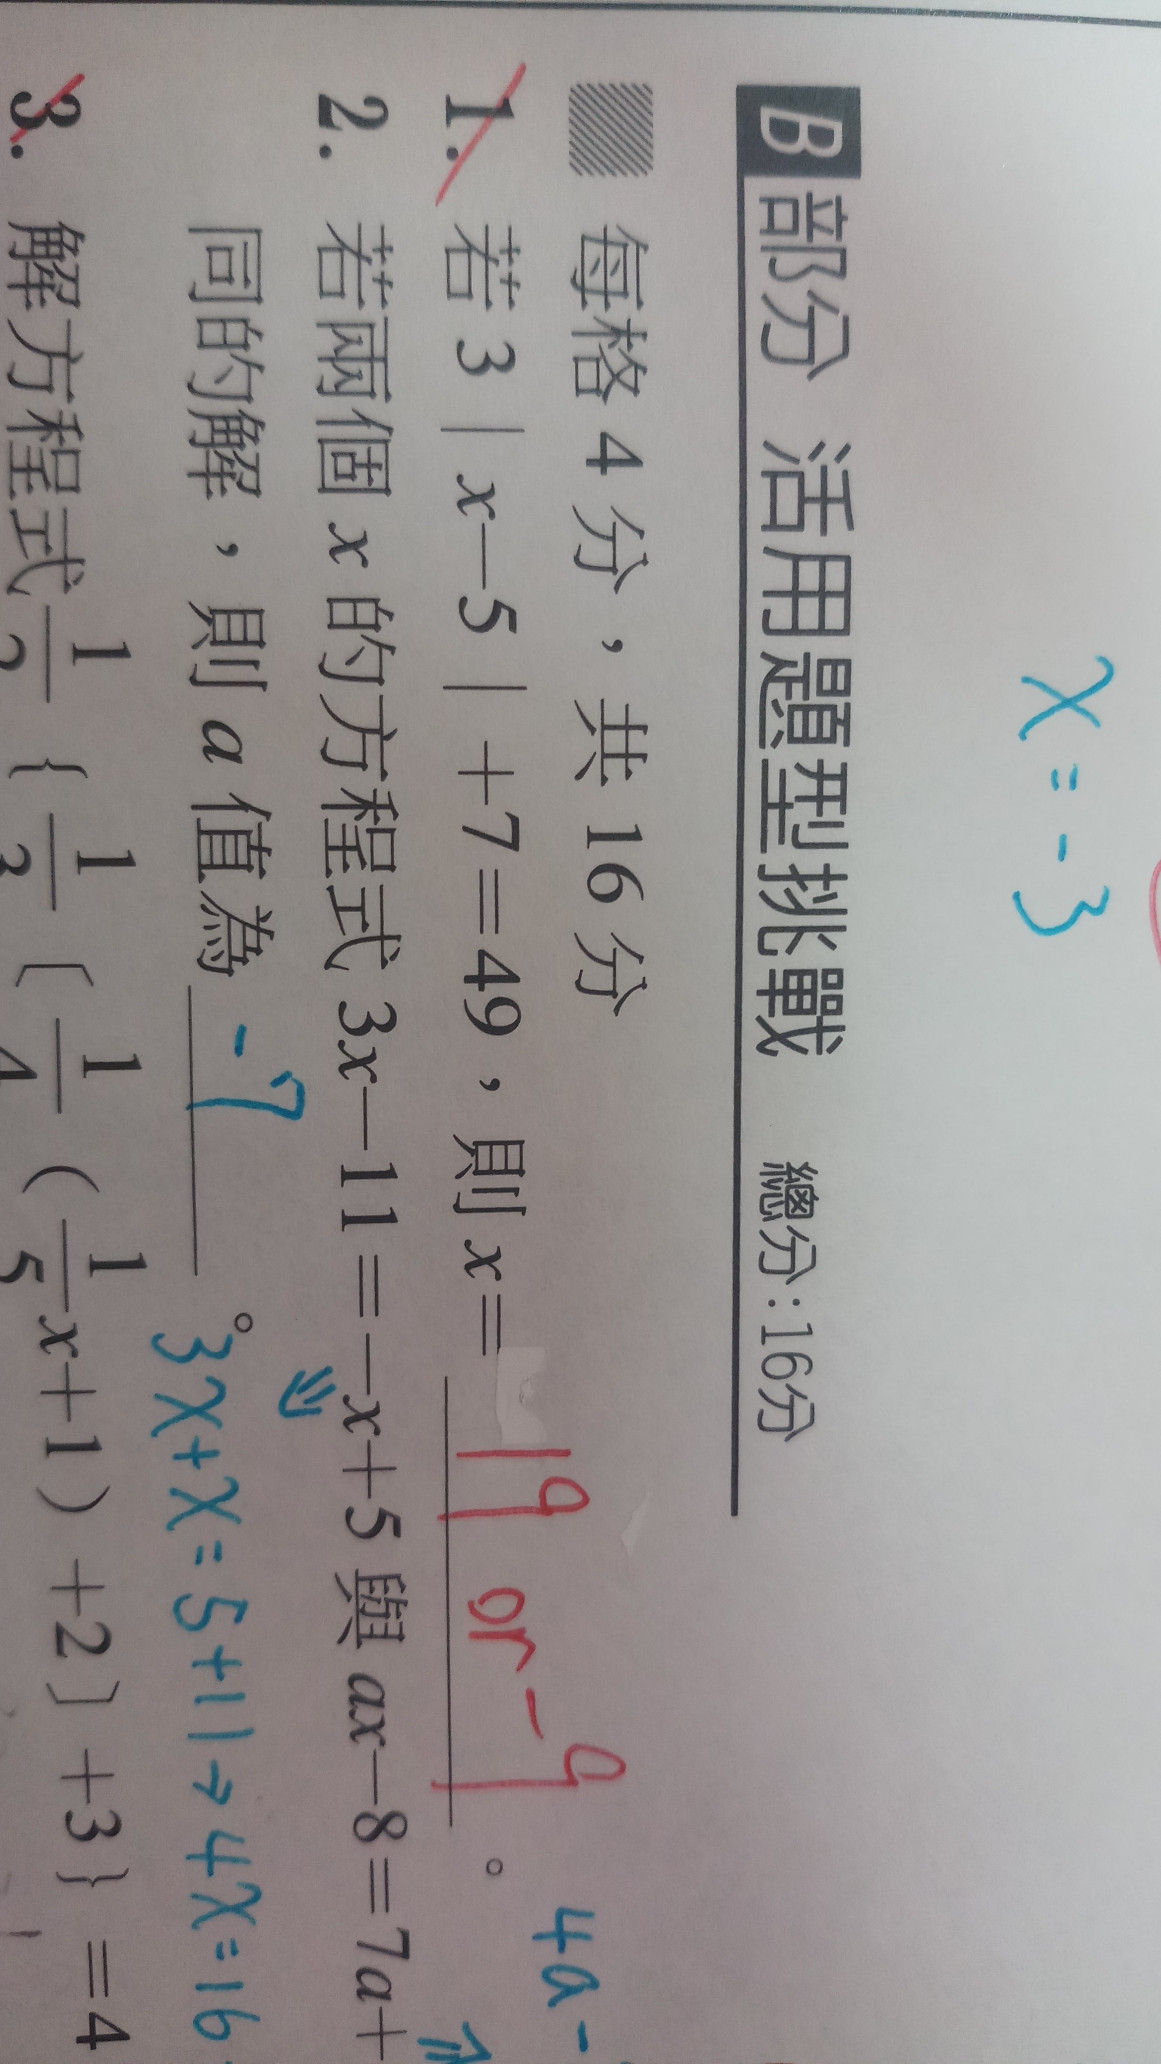 x=-3
B 部分 活用題型挑戰 總分:16分
每格4分,共16分
1. 若3|x-5|+7=49,則x= 19 or -9 。
4a-
2. 若兩個x的方程式3x-11=-x+5與ax-8=7a+
同的解,則a值為 -7 。
3x+x=5+11→4x=16
3. 解方程式1/2{1/3〔1/4(1/5x+1)+2〕+3}=4